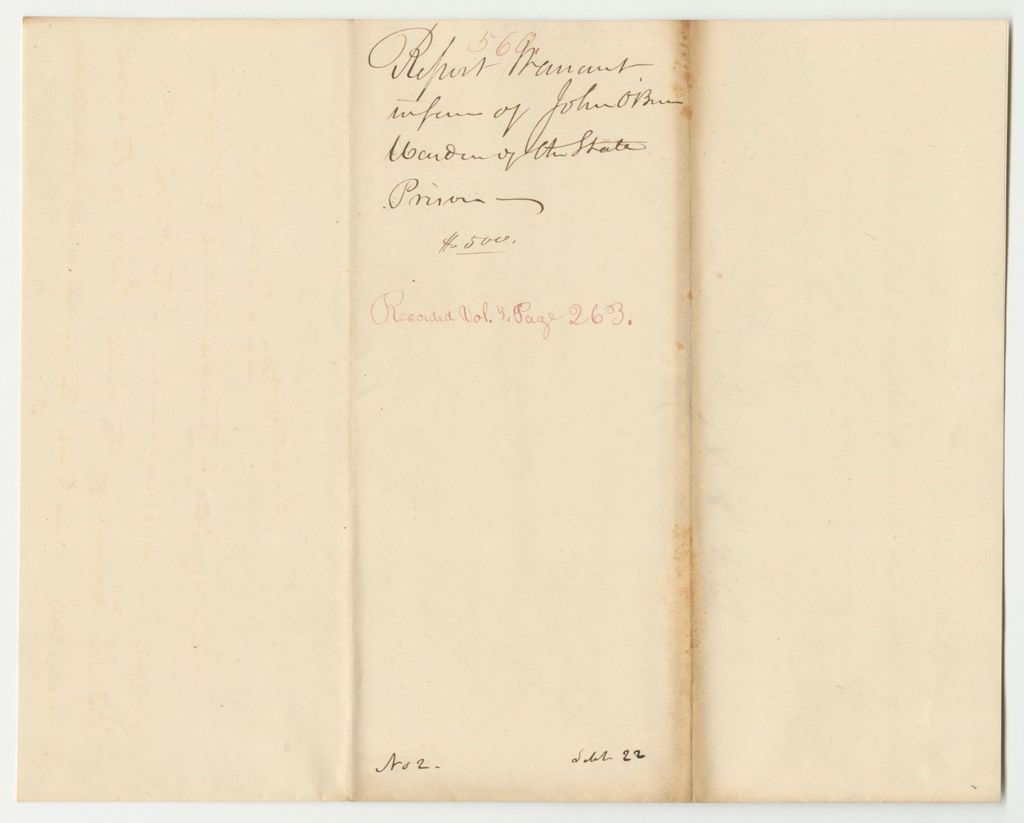 560.
Report Warrant
in favor of John O'Brien
Warden of the State
Prison
$500.
Recorded Vol. 5. Page 263.
No 2. Feb 22